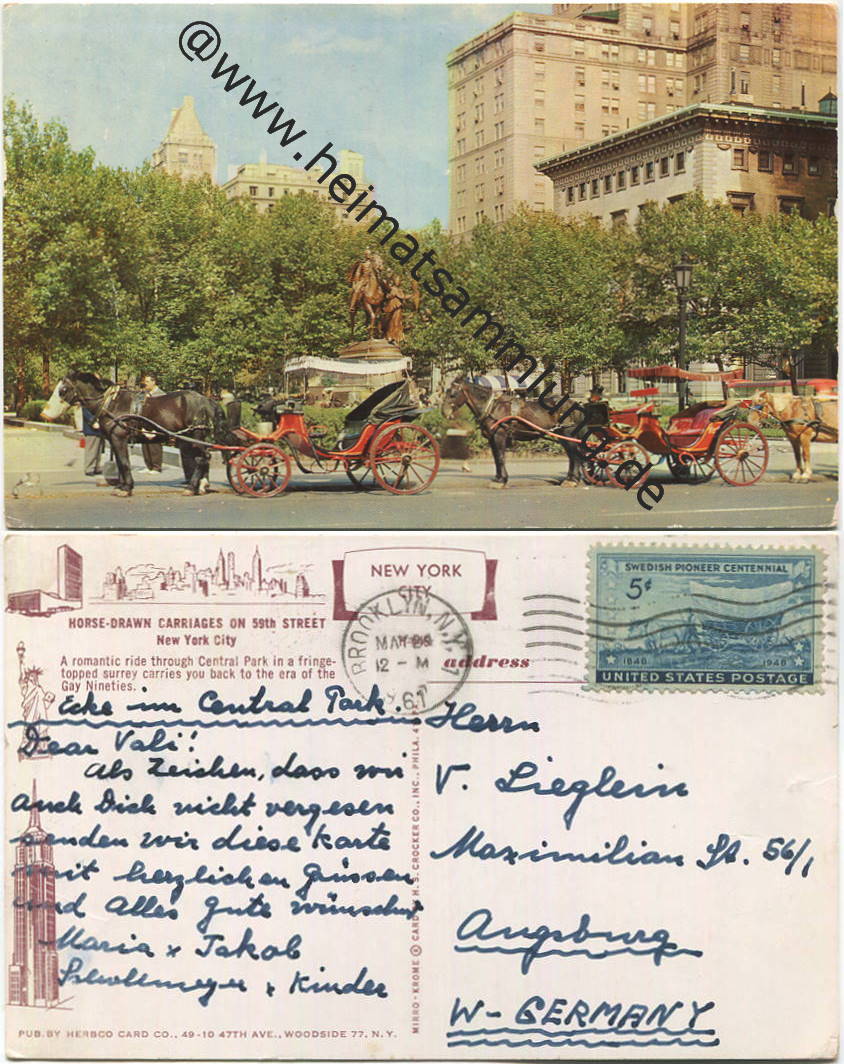 @www.heimatsammlung.de
NEW YORK
CITY
HORSE-DRAWN CARRIAGES ON 59th STREET
New York City
A romantic ride through Central Park in a fringe-
topped surrey carries you back to the era of the
Gay Nineties.
Ecke im Central Park.
Dear Vali!
Als Zeichen, dass wir
auch Dich nicht vergesen
senden wir diese Karte
mit herzlichen Grüssen
und Alles Gute wünschend
Maria & Jakob
& Kinder
PUB. BY HERBCO CARD CO., 49-10 47TH AVE., WOODSIDE 77, N.Y.
MIRRO-KROME ® CARD BY H.S. CROCKER CO., INC., PHILA. 4
BROOKLYN, N.Y. 1
MAY 29
12 - M
1961
address
SWEDISH PIONEER CENTENNIAL
5¢
1848 1948
UNITED STATES POSTAGE
Herrn
V. Lieglein
Maximilian St. 56/1
Augsburg
W-GERMANY